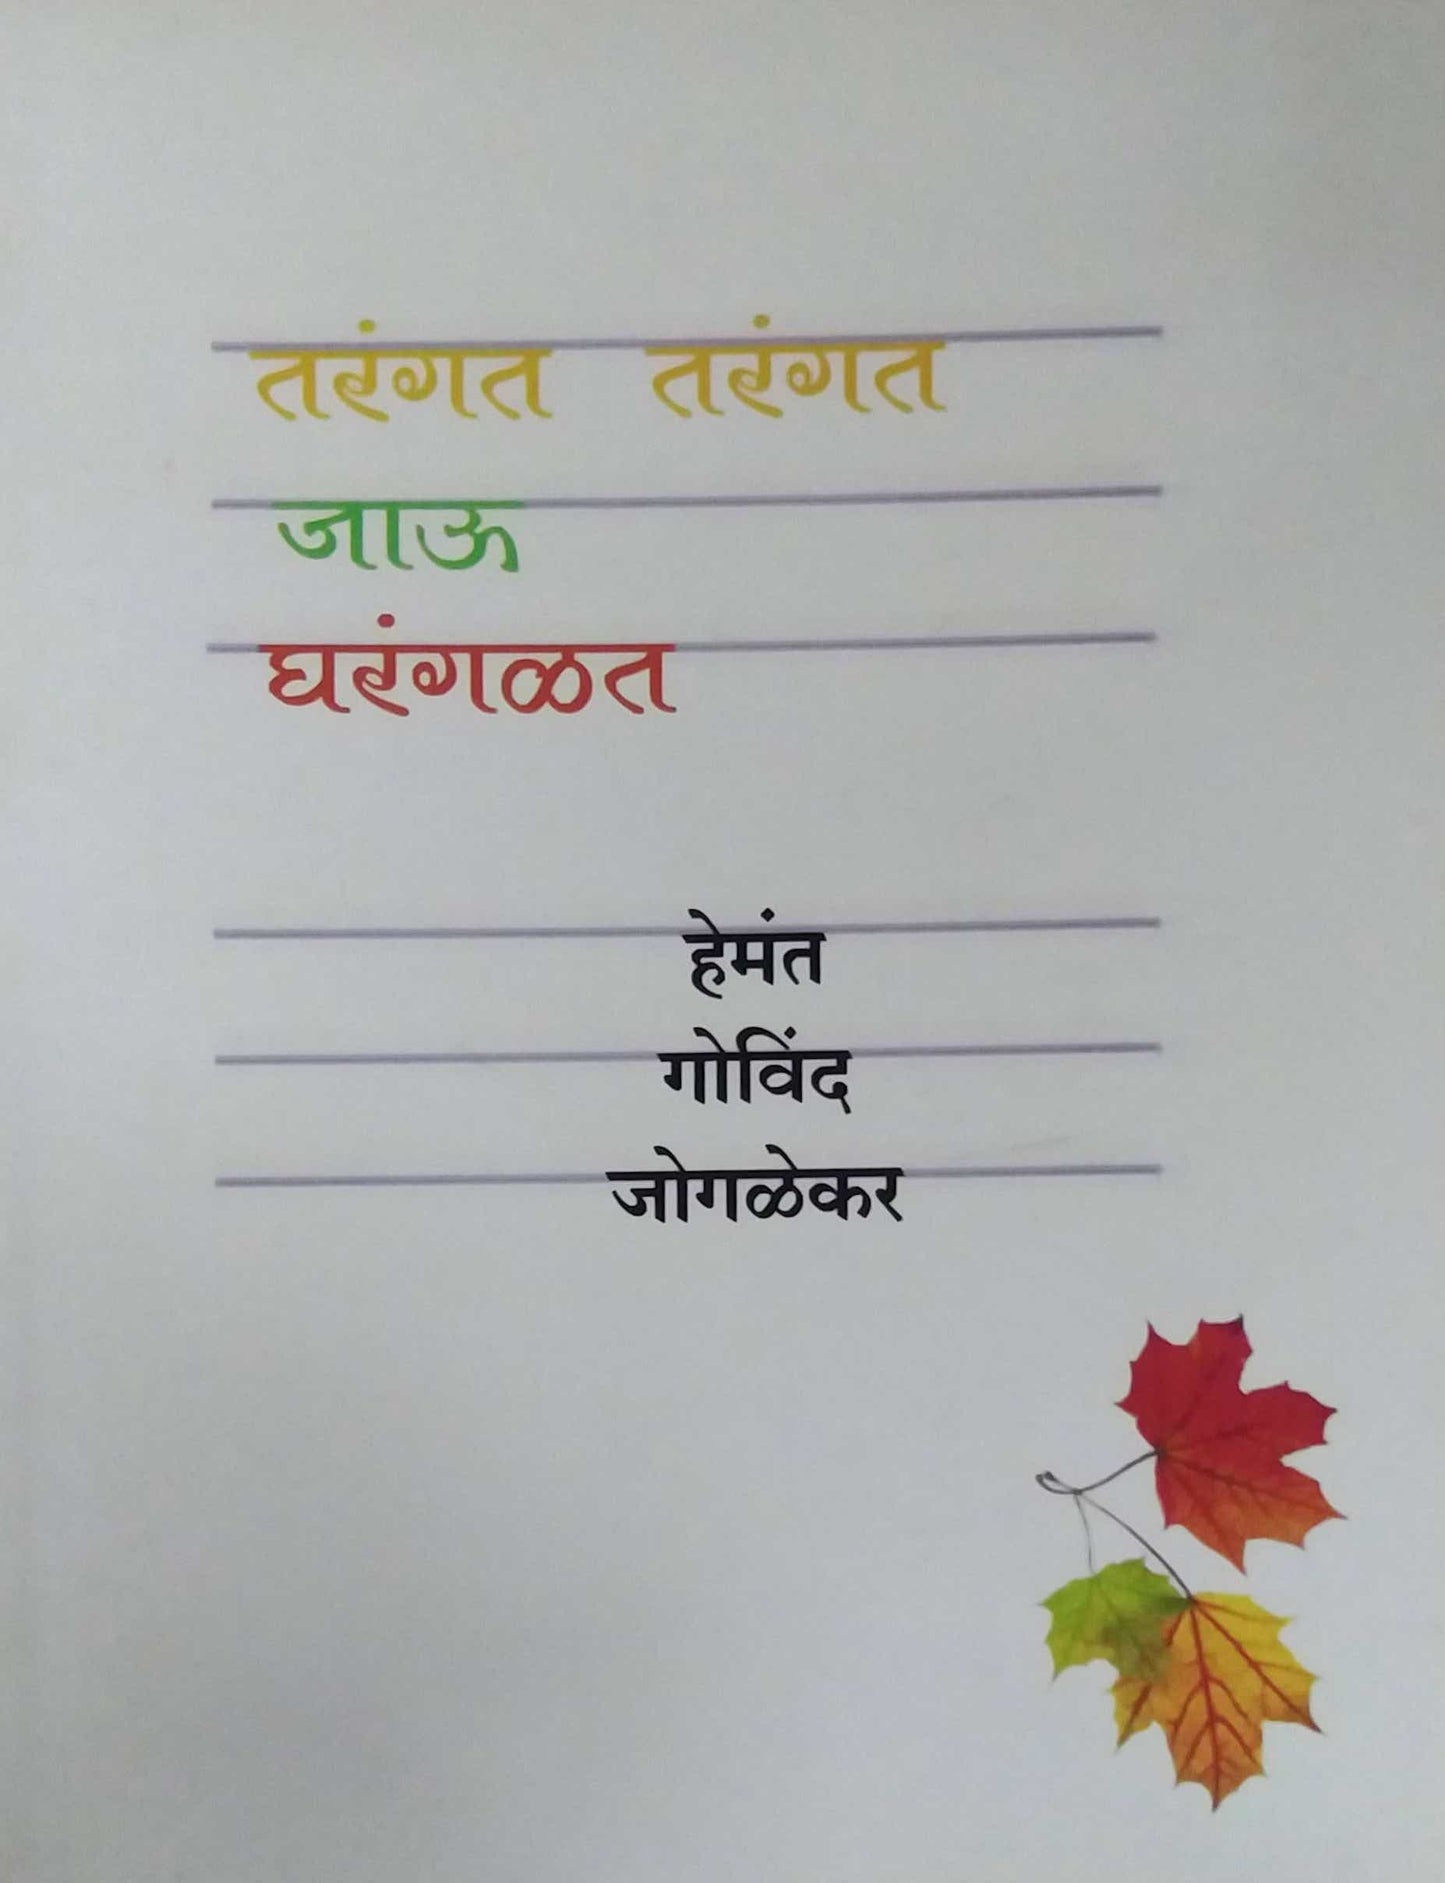 तरंगत तरंगत
जाऊ
घरंगळत
हेमंत
गोविंद
जोगळेकर